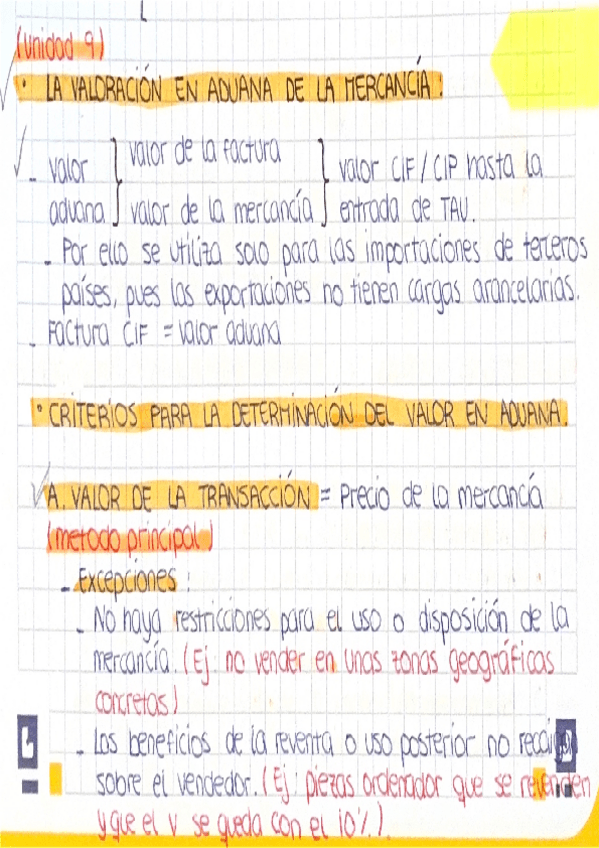 (Unidad 9)
· LA VALORACIÓN EN ADUANA DE LA MERCANCÍA:
- valor aduana } valor de la factura
valor de la mercancía } valor CIF / CIP hasta la entrada de TAU.
- Por ello se utiliza solo para las importaciones de terceros
países, pues las exportaciones no tienen cargas arancelarias.
- Factura CIF = valor aduana
· CRITERIOS PARA LA DETERMINACIÓN DEL VALOR EN ADUANA.
A. VALOR DE LA TRANSACCIÓN = Precio de la mercancía
(metodo principal)
- Excepciones:
- No haya restricciones para el uso o disposición de la
mercancía. (Ej: no vender en unas zonas geográficas
concretas)
- Los beneficios de la reventa o uso posterior no
sobre el vendedor. (Ej: piezas ordenador que se revenden
y que el V se queda con el 10%.)